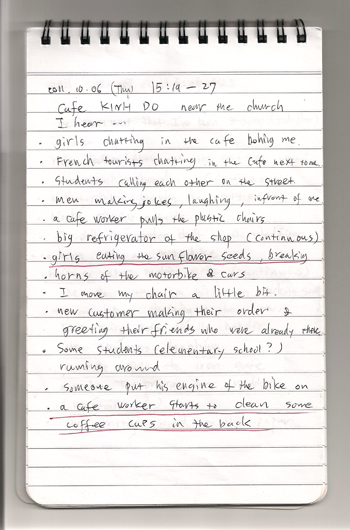 2011. 10. 06 (Thu) 15:19 - 27
Cafe KINH DO near the church
I hear ...
· girls chatting in the cafe behind me.
· French tourists chatting in the cafe next to me
· Students calling each other on the street
· Men making jokes, laughing, infront of me
· a cafe worker pulls the plastic chairs
· big refrigerator of the shop (continuous)
· girls eating the sunflower seeds, breaking
· horns of the motorbike & cars
· I move my chair a little bit.
· new customer making their order &
greeting their friends who were already there
· Some students (elementary school?)
running around
· someone put his engine of the bike on
· a cafe worker starts to clean some
coffee cups in the back